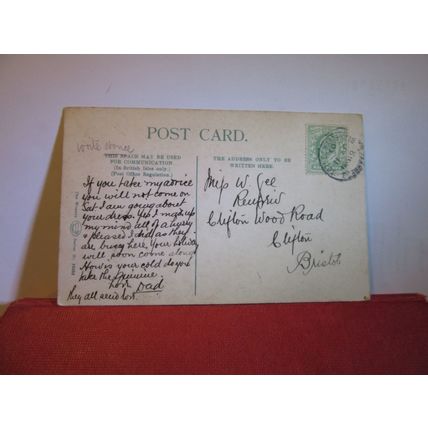 write home
POST CARD.
THIS SPACE MAY BE USED
FOR COMMUNICATION
(In British Isles only.)
(Post Office Regulation.)
THE ADDRESS ONLY TO BE
WRITTEN HERE.
If you take my advice
you will not come on
Sat I am going about
your dress. Yes I made up
my mind all of a hurry
& blessed I did as they
are busy here. Your holiday
will soon come along
How is your cold do you
take the Quinine.
Love Dad
they all send love.
Miss W. Gee
Clifton Wood Road
Clifton
Bristol